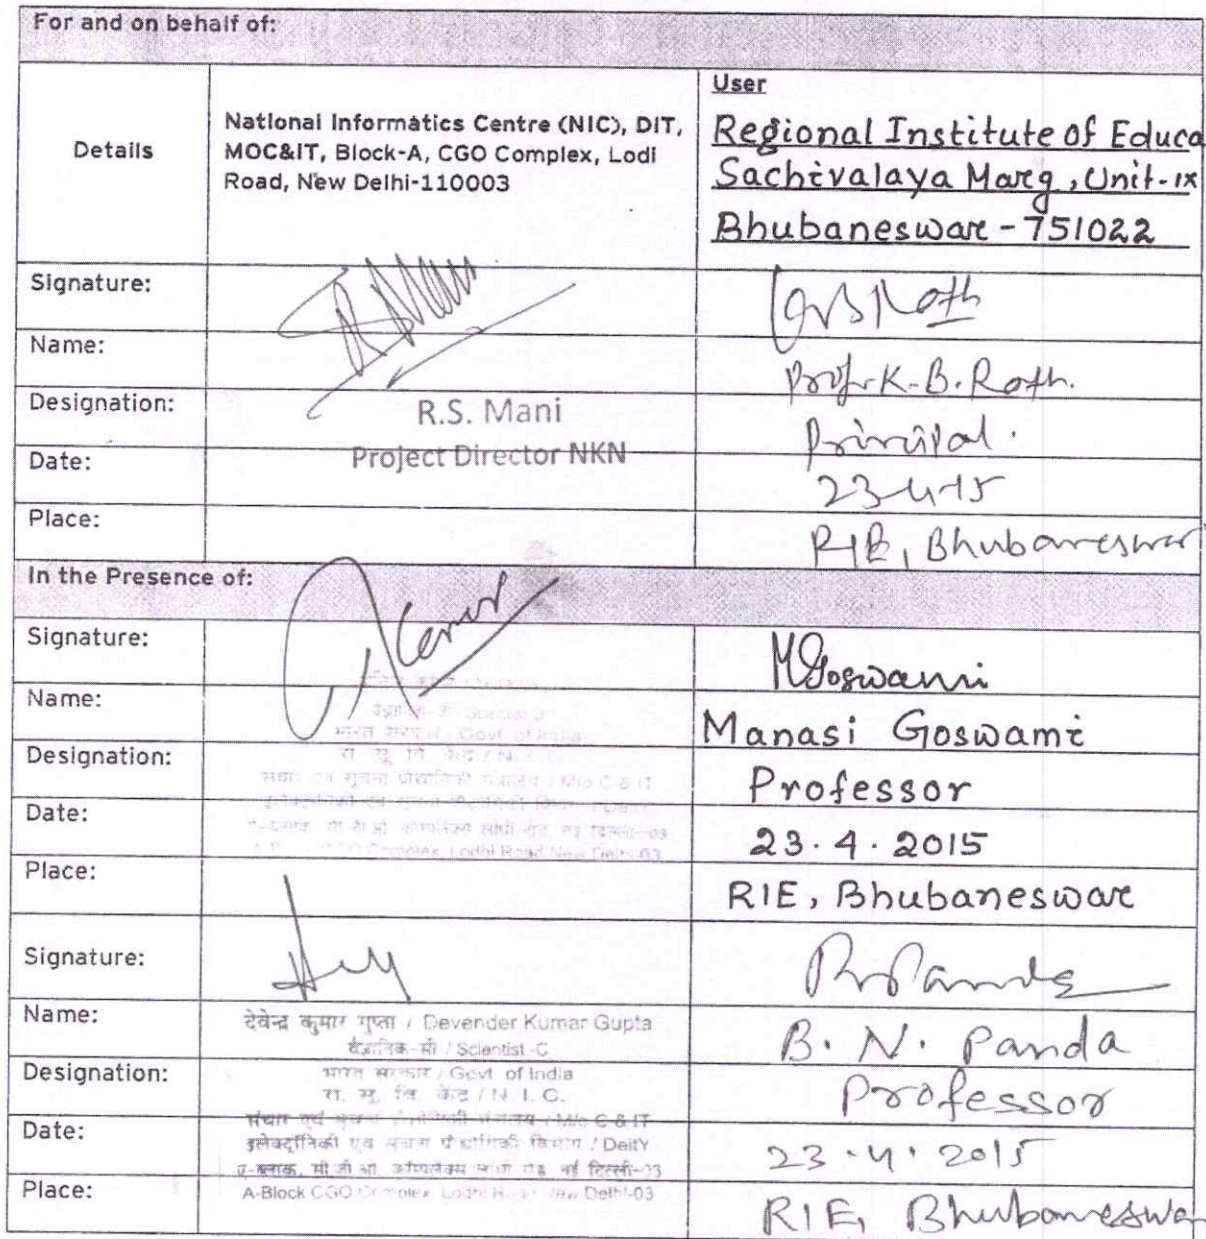 For and on behalf of:
Details
National Informatics Centre (NIC), DIT,
MOC&IT, Block-A, CGO Complex, Lodi
Road, New Delhi-110003
User
Regional Institute of Educa
Sachivalaya Marg, Unit-IX
Bhubaneswar - 751022
Signature:
Name:
Prof. K. B. Rath.
Designation:
R.S. Mani
Principal.
Date:
Project Director NKN
23-4-15
Place:
RIE, Bhubaneswar
In the Presence of:
Signature:
MGoswami
Name:
Manasi Goswami
Designation:
भारत सरकार / Govt. of India
Professor
संचार एवं सूचना प्रौद्योगिकी मंत्रालय / M/o C & IT
Date:
23.4.2015
CGO Complex, Lodhi Road New Delhi-03
Place:
RIE, Bhubaneswar
Signature:
Name:
देवेन्द्र कुमार गुप्ता / Devender Kumar Gupta
वैज्ञानिक-सी / Scientist-C
B. N. Panda
Designation:
भारत सरकार / Govt. of India
रा. सू. वि. केंद्र / N. I. C.
Professor
Date:
संचार एवं सूचना प्रौद्योगिकी मंत्रालय / M/o C & IT
इलेक्ट्रॉनिकी एवं सूचना प्रौद्योगिकी विभाग / DeitY
23.4.2015
ए-ब्लाक, सी जी ओ कॉम्पलैक्स लोधी रोड नई दिल्ली-03
Place:
A-Block CGO Complex, Lodhi Road New Delhi-03
RIE, Bhubaneswar